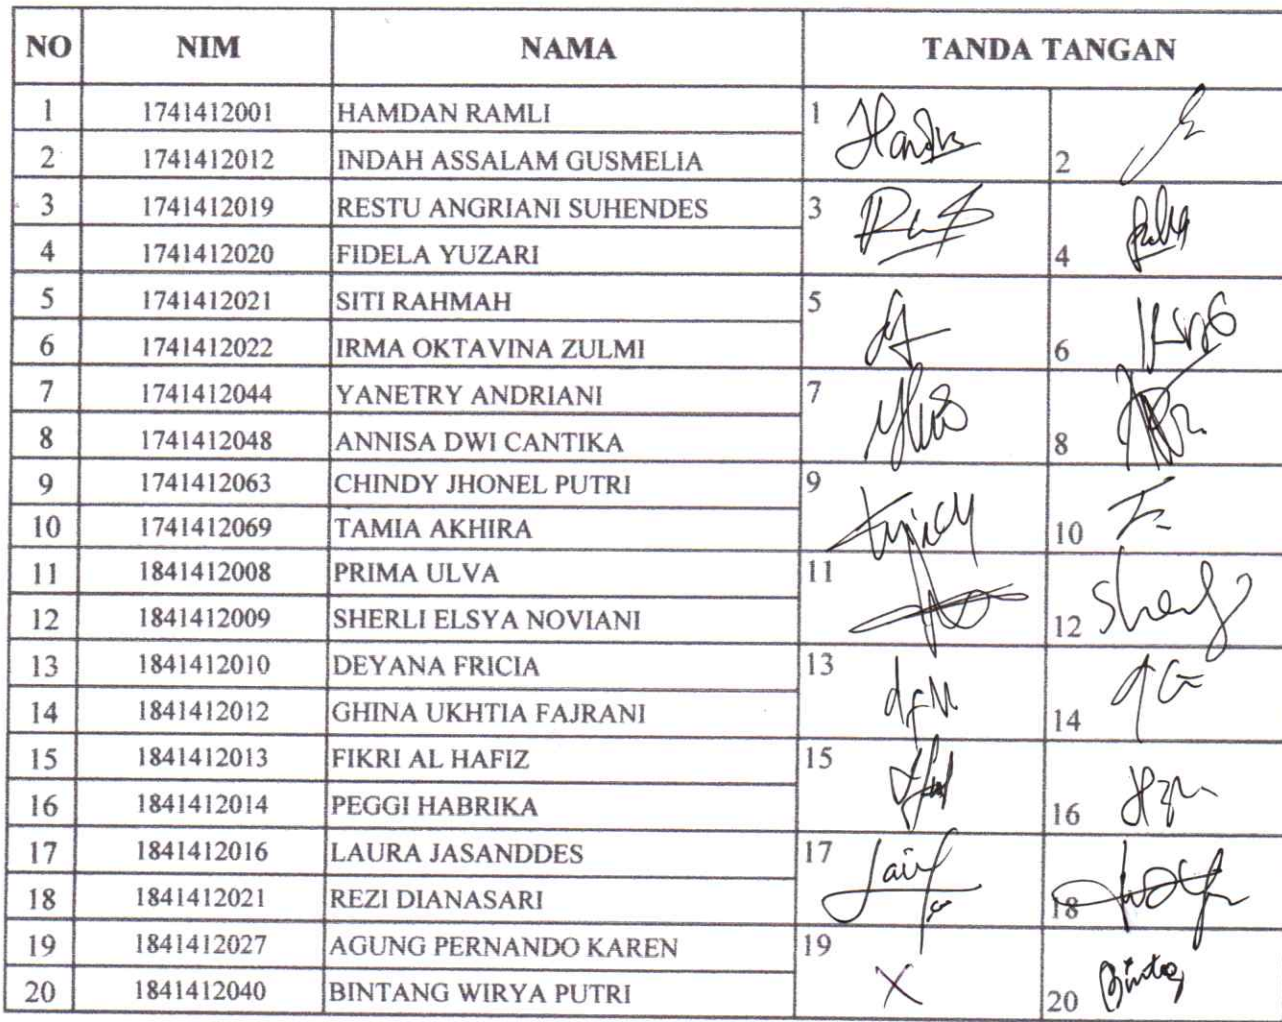 NO NIM NAMA TANDA TANGAN
1 1741412001 HAMDAN RAMLI 1
2 1741412012 INDAH ASSALAM GUSMELIA 2
3 1741412019 RESTU ANGRIANI SUHENDES 3
4 1741412020 FIDELA YUZARI 4
5 1741412021 SITI RAHMAH 5
6 1741412022 IRMA OKTAVINA ZULMI 6
7 1741412044 YANETRY ANDRIANI 7
8 1741412048 ANNISA DWI CANTIKA 8
9 1741412063 CHINDY JHONEL PUTRI 9
10 1741412069 TAMIA AKHIRA 10
11 1841412008 PRIMA ULVA 11
12 1841412009 SHERLI ELSYA NOVIANI 12
13 1841412010 DEYANA FRICIA 13
14 1841412012 GHINA UKHTIA FAJRANI 14
15 1841412013 FIKRI AL HAFIZ 15
16 1841412014 PEGGI HABRIKA 16
17 1841412016 LAURA JASANDDES 17
18 1841412021 REZI DIANASARI 18
19 1841412027 AGUNG PERNANDO KAREN 19 X
20 1841412040 BINTANG WIRYA PUTRI 20